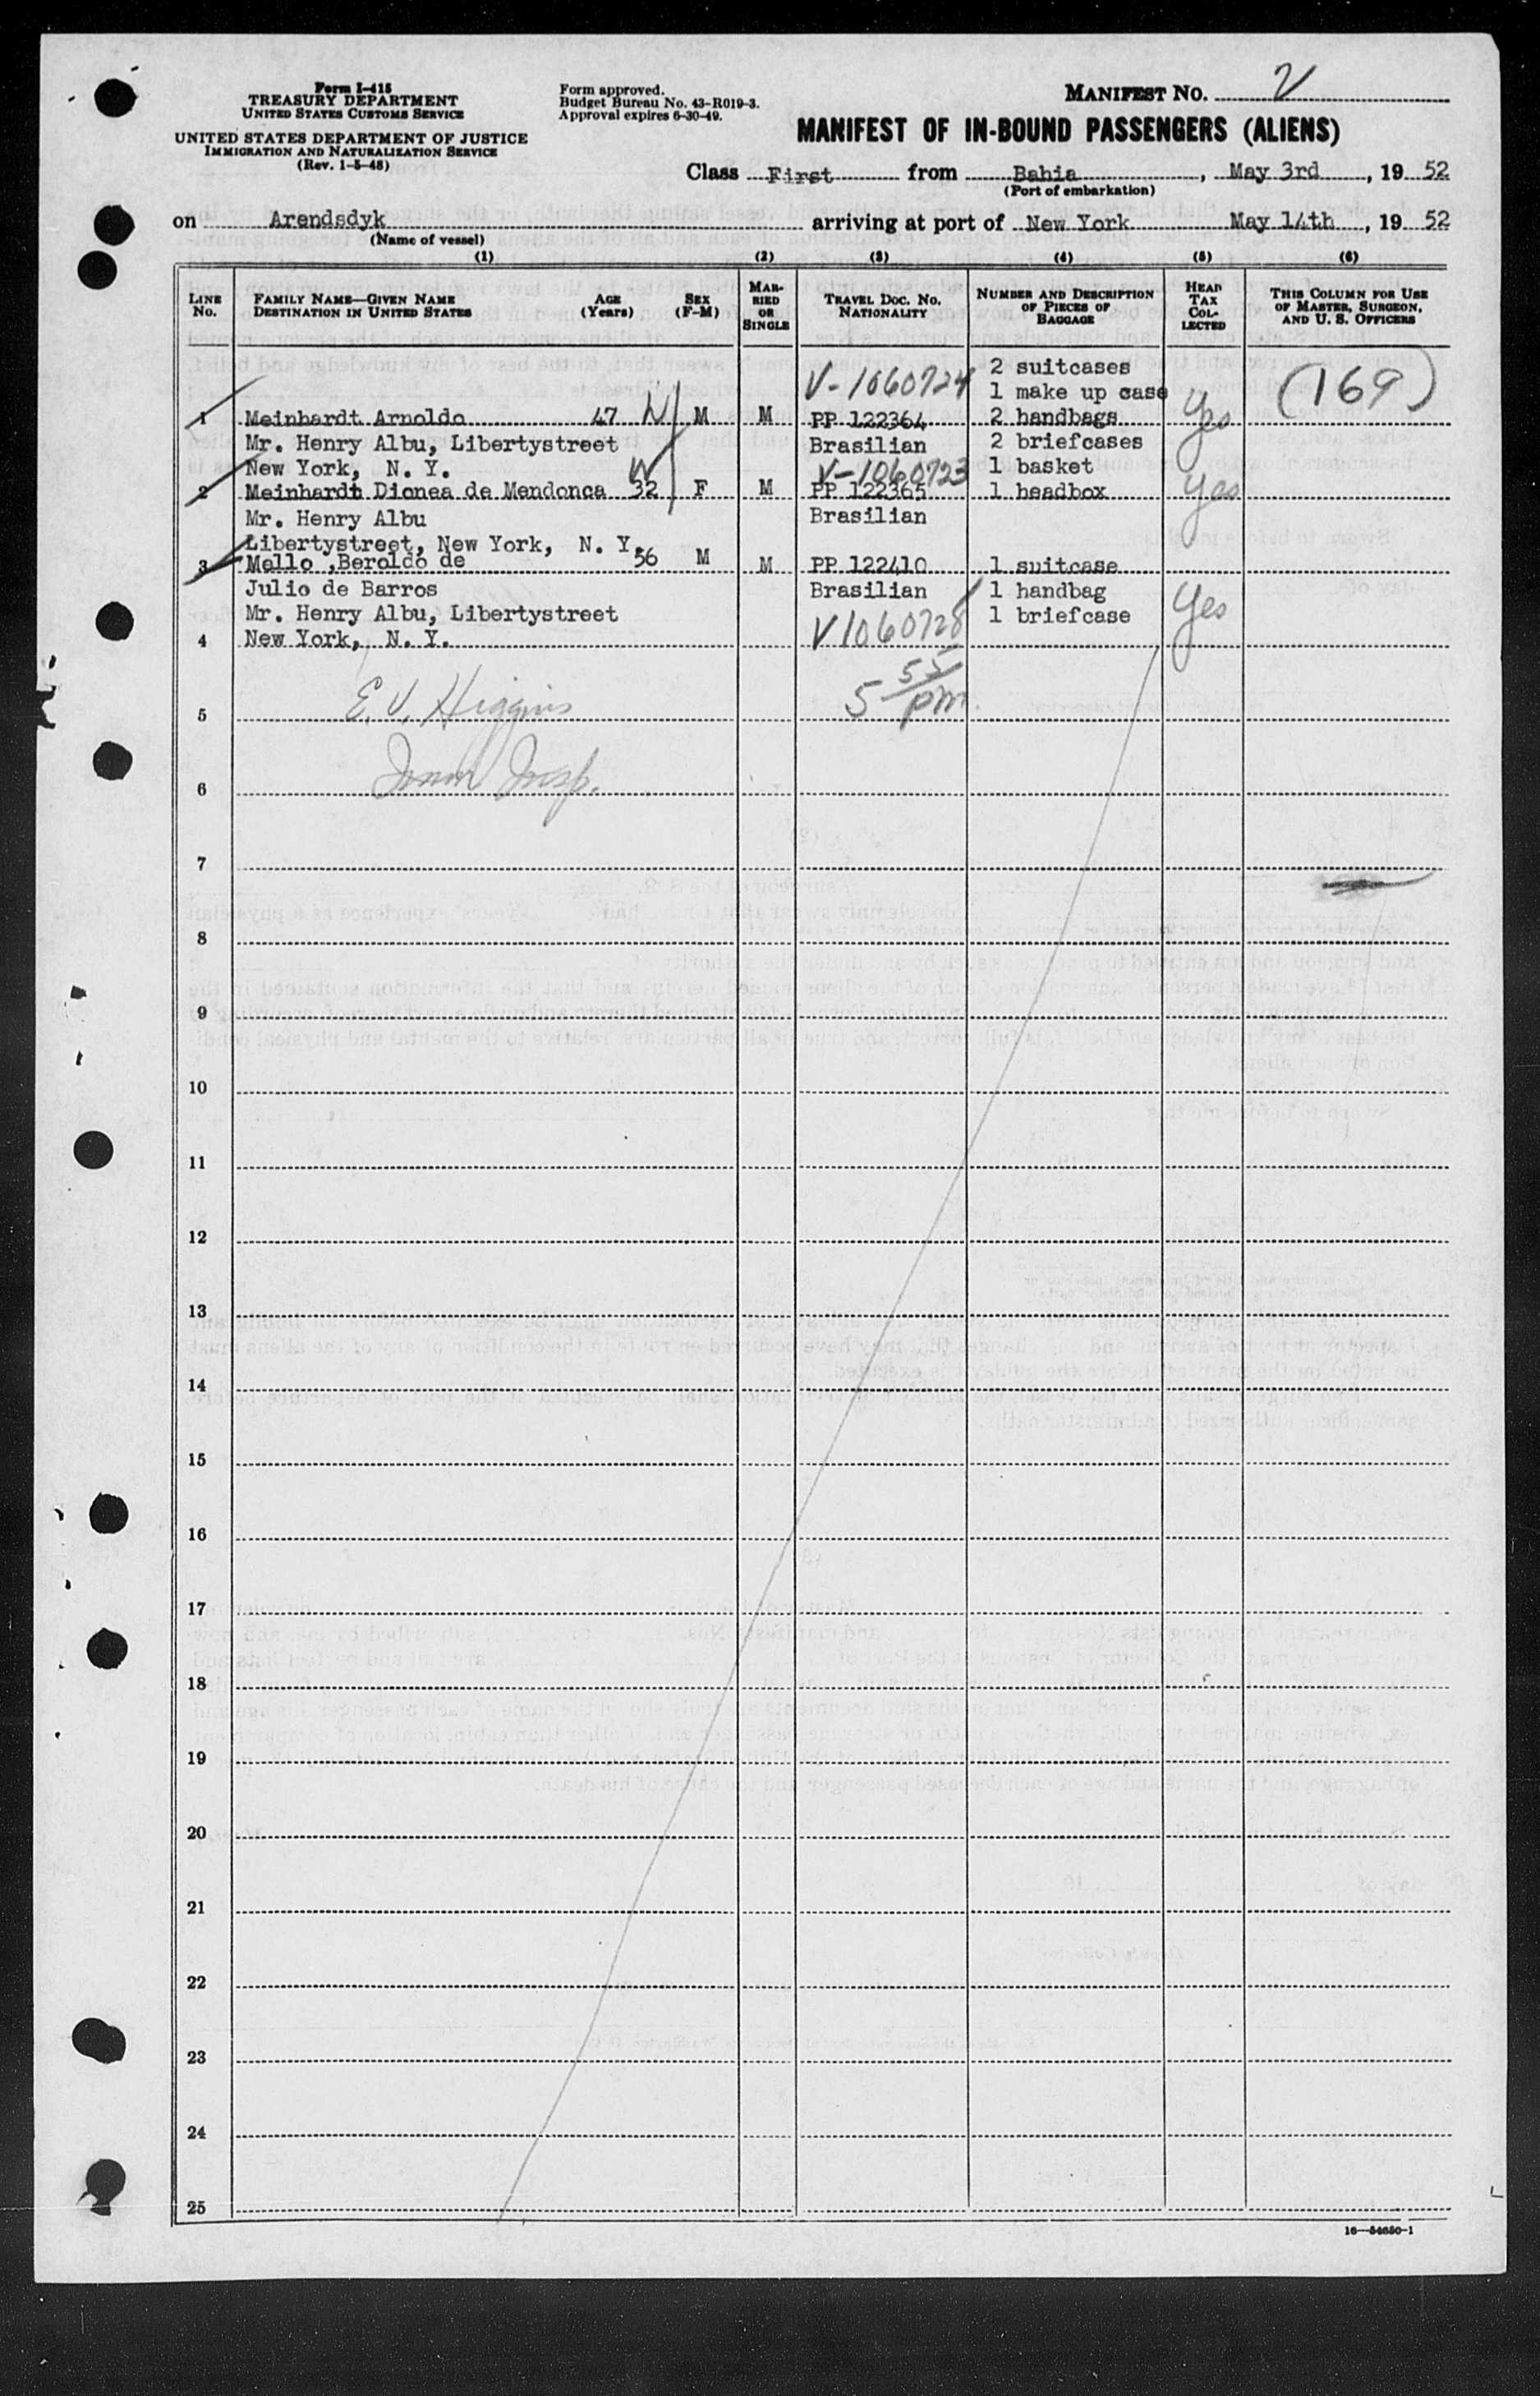 Form I-415
TREASURY DEPARTMENT
UNITED STATES CUSTOMS SERVICE
UNITED STATES DEPARTMENT OF JUSTICE
IMMIGRATION AND NATURALIZATION SERVICE
(Rev. 1-5-48)
Form approved.
Budget Bureau No. 43-R019-3.
Approval expires 6-30-49.
MANIFEST NO. 2
MANIFEST OF IN-BOUND PASSENGERS (ALIENS)
Class First from Bahia, May 3rd, 19 52
(Port of embarkation)
on Arendsdyk arriving at port of New York May 14th, 19 52
(Name of vessel)
(1) (2) (3) (4) (5) (6)
LINE NO. FAMILY NAME—GIVEN NAME DESTINATION IN UNITED STATES AGE (Years) SEX (F-M) MARRIED OR SINGLE TRAVEL DOC. NO. NATIONALITY NUMBER AND DESCRIPTION OF PIECES OF BAGGAGE HEAD TAX COLLECTED THIS COLUMN FOR USE OF MASTER, SURGEON, AND U. S. OFFICERS
2 suitcases
V-1060724 1 make up case (169)
1 Meinhardt Arnoldo 47 W M M PP 122364 2 handbags Yes
Mr. Henry Albu, Libertystreet Brasilian 2 briefcases
New York, N. Y. W V-1060723 1 basket
2 Meinhardt Dionea de Mendonca 32 F M PP 122365 1 headbox Yes
Mr. Henry Albu Brasilian
Libertystreet, New York, N. Y.
3 Mello ,Beroldo de 56 M M PP 122410 1 suitcase
Julio de Barros Brasilian 1 handbag Yes
Mr. Henry Albu, Libertystreet V1060728 1 briefcase
4 New York, N. Y.
5 55/pm
5 E. V. Higgins
6 Imm Insp.
7
8
9
10
11
12
13
14
15
16
17
18
19
20
21
22
23
24
25
16—54650-1